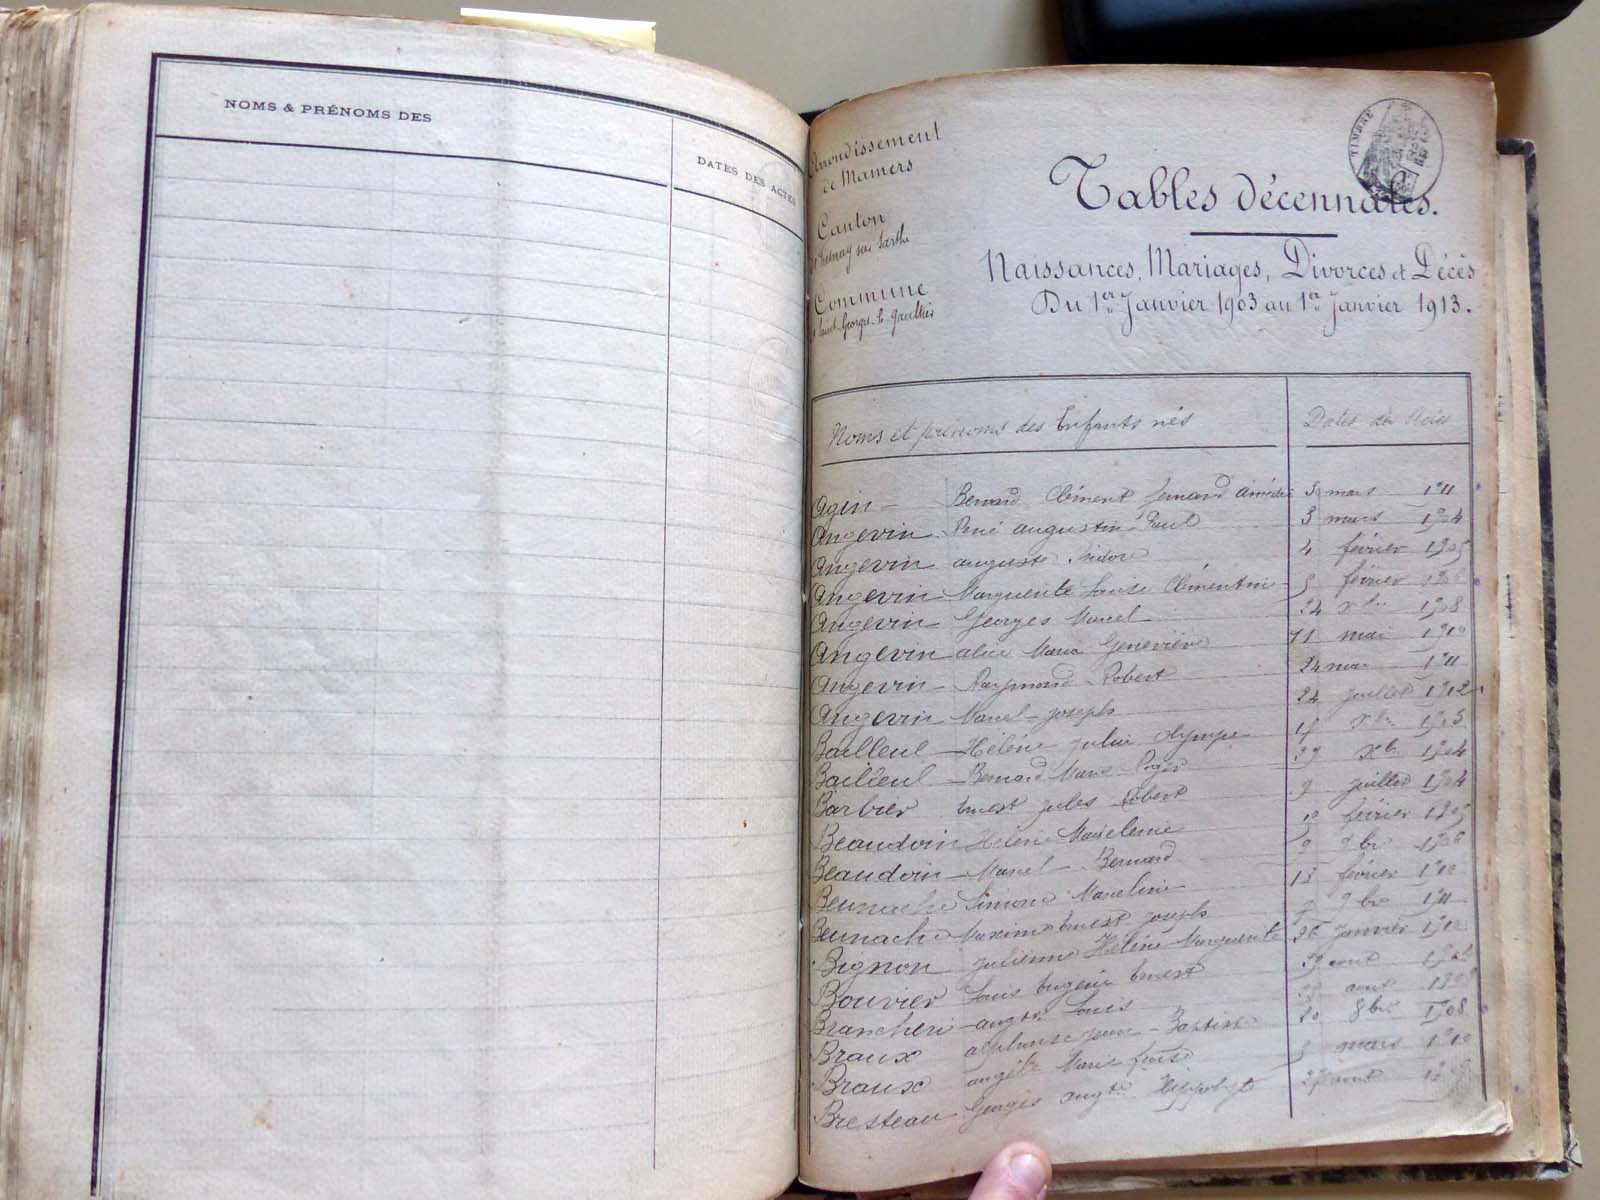 NOMS & PRÉNOMS DES
DATES DES ACTES
Arrondissement
de Mamers
Canton
Fresnay sur Sarthe
Commune
Saint-Georges-le-Gaultier
TIMBRE
Tables décennales.
Naissances, Mariages, Divorces et Décès
Du 1er Janvier 1903 au 1er Janvier 1913.
Noms et prénoms des Enfants nés Dates des Actes
Agin Bernard Clément fernand amédée 30 mars 1911
Angevin René augustin Paul 3 mars 1904
Angevin auguste isidore 4 février 1905
Angevin Marguerite Louise Clémentine février
Angevin Georges Marcel 24 xbre 1908
Angevin alice Maria Geneviève mai 1910
Angevin Raymond Robert 24 mai 1911
Angevin Marcel joseph 24 juillet 1912
Bailleul Hélène julie olympe xbre 1903
Bailleul Bernard Marie Roger xbre 1904
Barbier Ernest jules Robert 9 juillet 1904
Beaudoin Hélène Madeleine février 1905
Beaudoin Marcel Bernard 9 9bre 1906
Beunache Simone Marceline 13 février 1910
Beunache Maxime Ernest joseph 9bre 1911
Bignon julienne Hélène Marguerite 26 janvier 1912
Bouvier Louis Eugène Ernest août
Brancherie augte Louis août
Braux alphonse jean-Baptiste 20 8bre 1908
Braux angèle Marie mars 1910
Bresteau Georges augte Hippolyte août